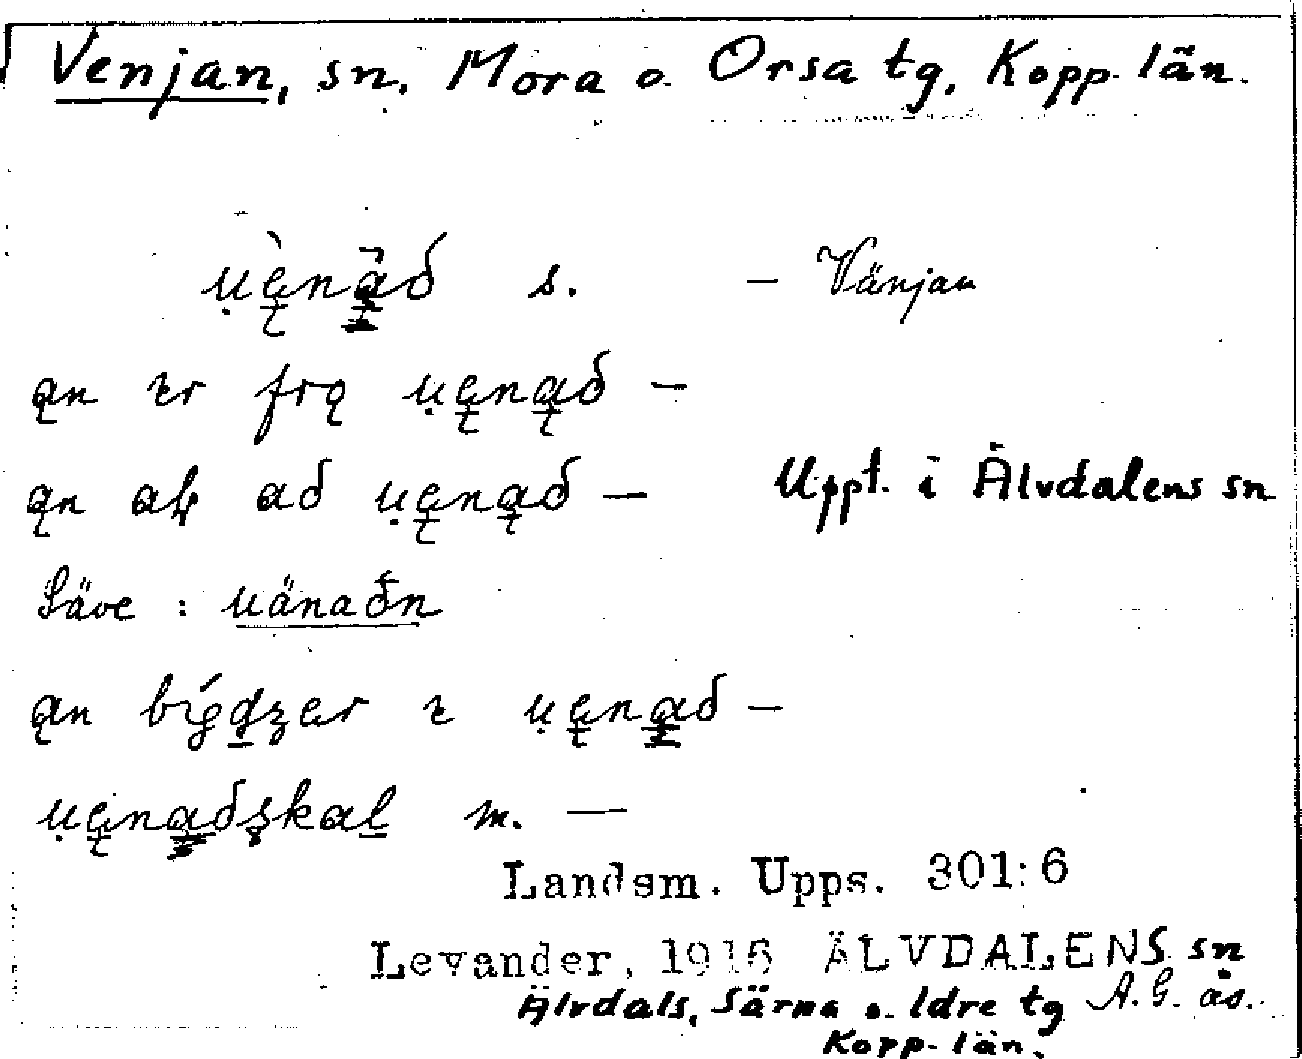 Venjan, sn, Mora o. Orsa tg, Kopp. län.
u̯ęnąð s. – Vänjan
ąn er frą u̯ęnąð –
ąn að u̯ęnąð – Uppt. i Älvdalens sn
Säve : uänaðn
ąn u̯ęnąð –
u̯ęnąðskaḷ m. –
Landsm. Upps. 301:6
Levander, 1916 ÄLVDALENS sn
Älvdals, Särna o. Idre tg A. G. ås.
Kopp. län.